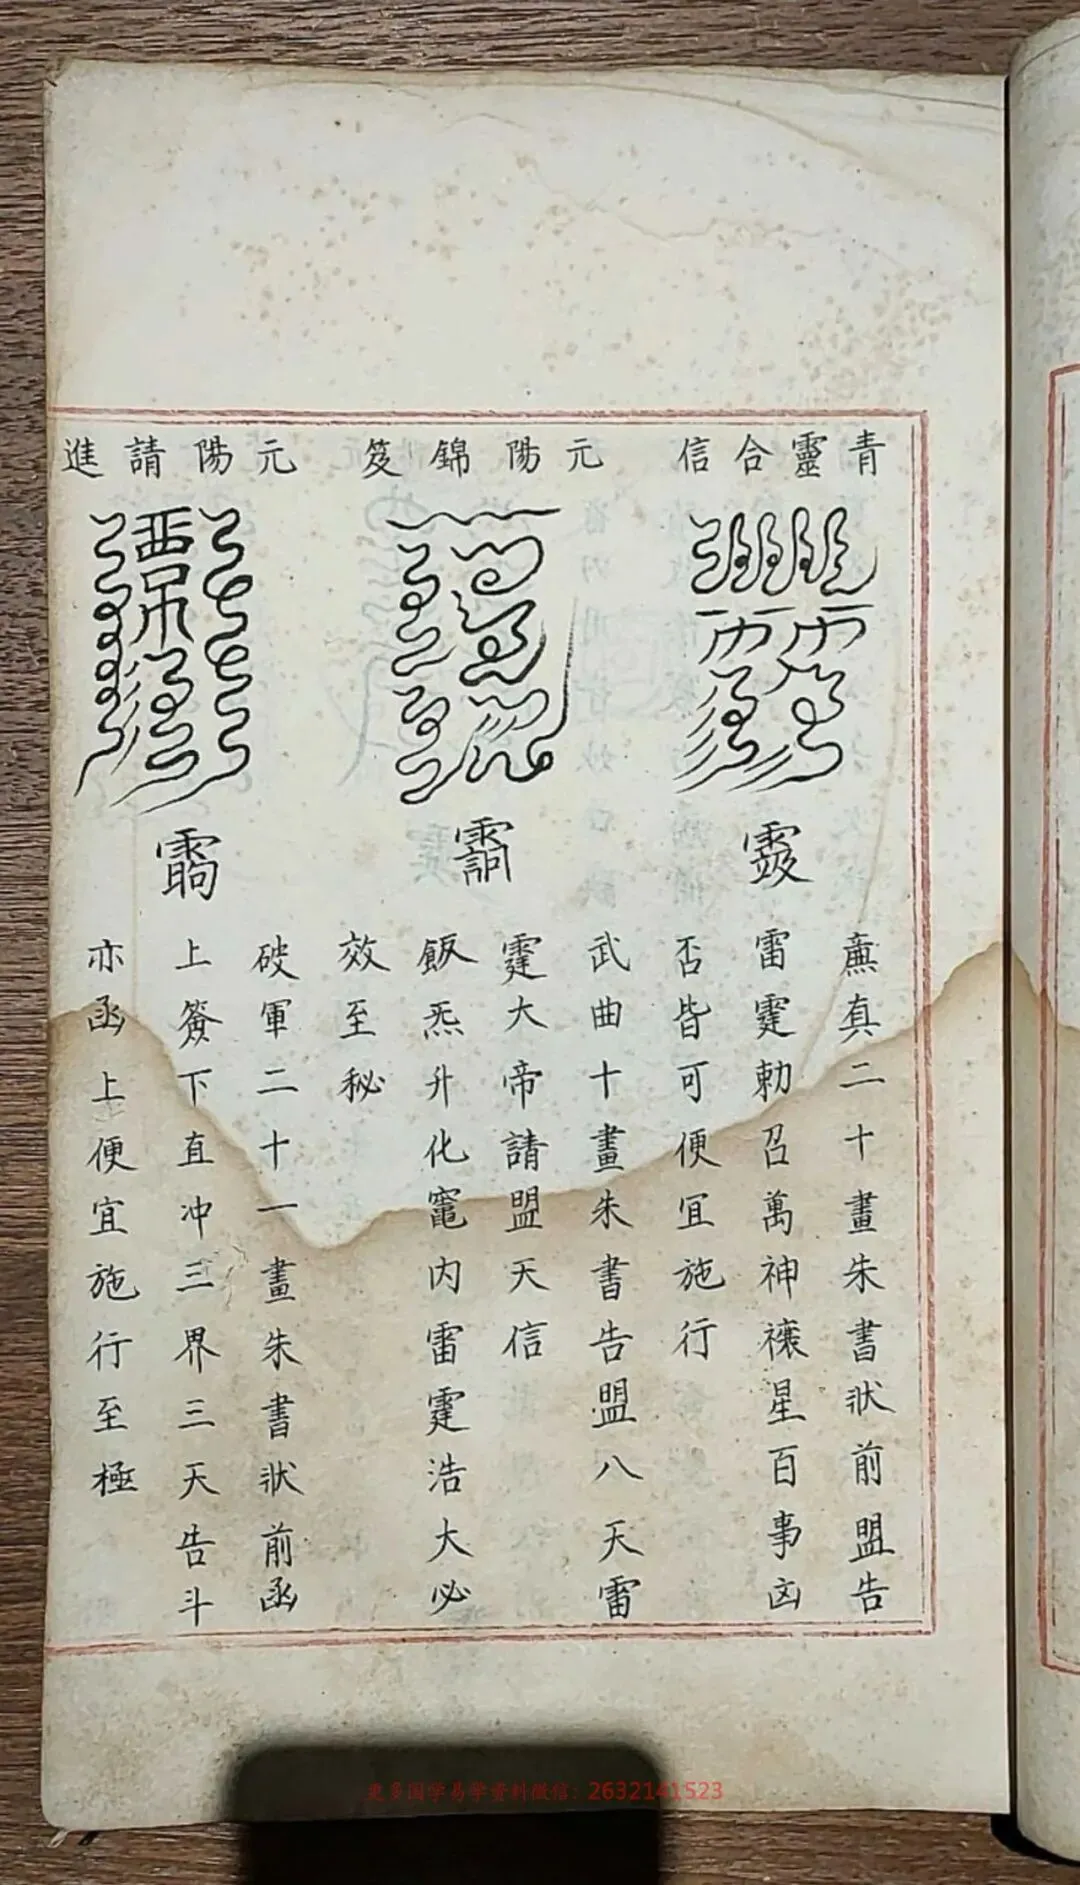 青靈合信
廉真二十畫朱書狀前盟告
雷霆勅召萬神禳星百事凶
否皆可便宜施行
元陽錦笈
武曲十畫朱書告盟八天雷
霆大帝請盟天信
飯炁升化竈内雷霆浩大必
效至秘
元陽請進
破軍二十一畫朱書狀前函
上簽下直冲三界三天告斗
亦函上便宜施行至極
更多国学易学资料微信：2632141523